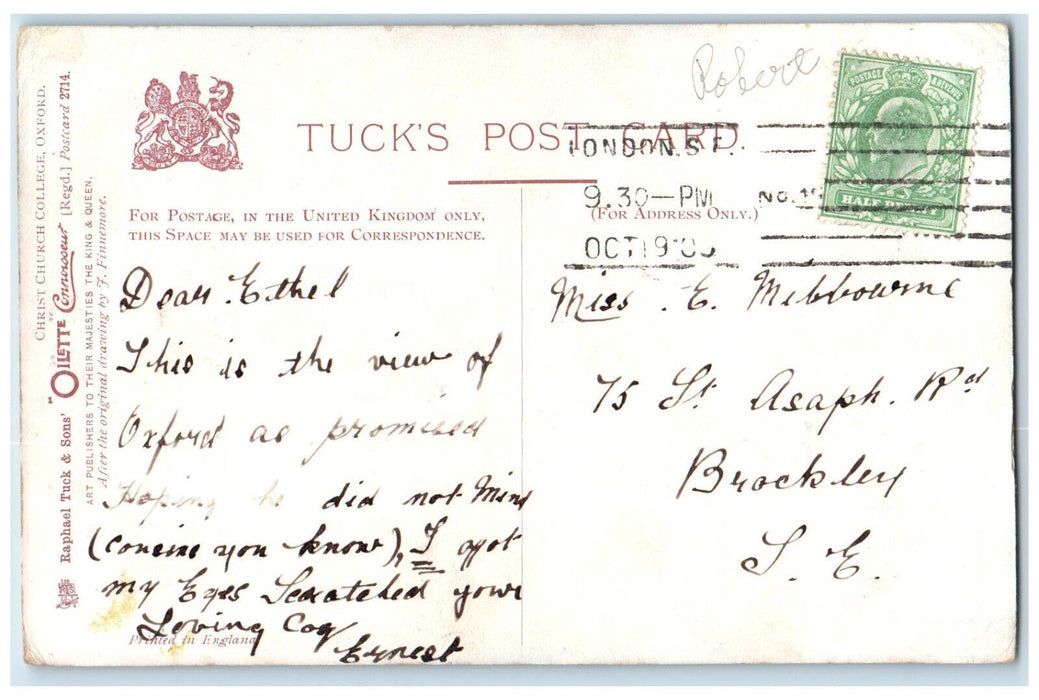 Robert
TUCK'S POST CARD.
POSTAGE & REVENUE
HALF PENNY
LONDON. S.E.
9.30—PM
OCT 19 0
FOR POSTAGE, IN THE UNITED KINGDOM ONLY,
THIS SPACE MAY BE USED FOR CORRESPONDENCE.
(FOR ADDRESS ONLY.)
CHRIST CHURCH COLLEGE, OXFORD.
Raphael Tuck & Sons' "OILETTE" Connoisseur [Regd.] Postcard 2714.
ART PUBLISHERS TO THEIR MAJESTIES THE KING & QUEEN.
After the original drawing by J. Finnemore.
Dear Ethel
This is the view of
Oxford as promised
Hoping he did not Mind
(cousins you know), I got
my Eyes Scratched your
Loving
Ernest
Printed in England
Miss. E. Melbourne
75 St. Asaph. Rd
Brockley
S. E.